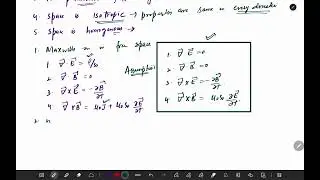 4. Space is isotropic → properties are same in every directi
5. Space is homogenous →
1. Maxwells in free space
1. ∇⃗·E⃗ = ρ/ε₀
2. ∇⃗·B⃗ = 0
3. ∇⃗×E⃗ = -∂B⃗/∂t
4. ∇⃗×B⃗ = μ₀J⃗ + μ₀ε₀ ∂E⃗/∂t
2.
Assumption
1. ∇⃗·E⃗ = 0
2. ∇⃗·B⃗ = 0
3. ∇⃗×E⃗ = -∂B⃗/∂t
4. ∇⃗×B⃗ = μ₀ε₀ ∂E⃗/∂t